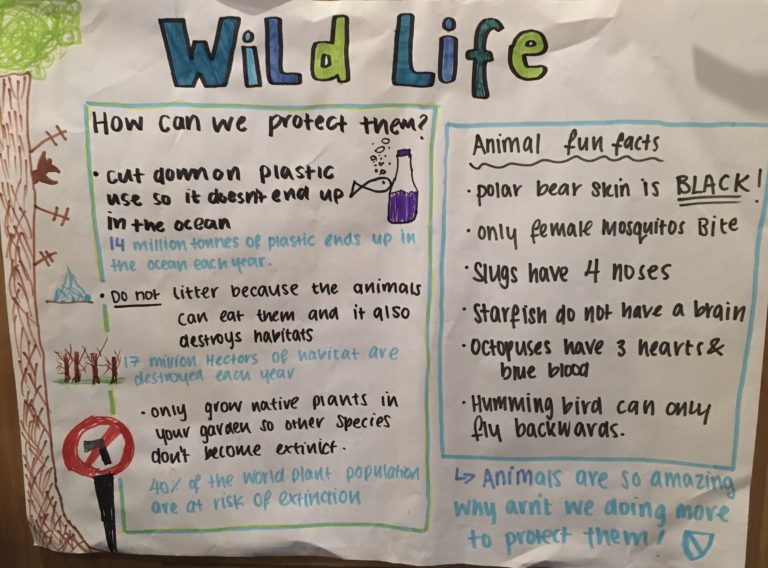 WiLd Life
How can we protect them?
• cut donmon plastic
use so it doesn't end up
in the ocean
14 million tonnes of plastic ends up in
the ocean each year.
• Do not litter because the animals
can eat them and it also
destroys havitats
17 million Hectors of havitat are
destroyed each year
• only grow native plants in
your garden so other species
don't become extinict.
40% of the world plant population
are at risk of extinction
Animal fun facts
• polar bear skin is BLACK!
• only female Mosquitos Bite
• Slugs have 4 noses
• Starfish do not have a brain
• Octopuses have 3 hearts &
blue blood
• Humming bird can only
fly backwards.
↳ Animals are so amazing
why arn't we doing more
to protect them!